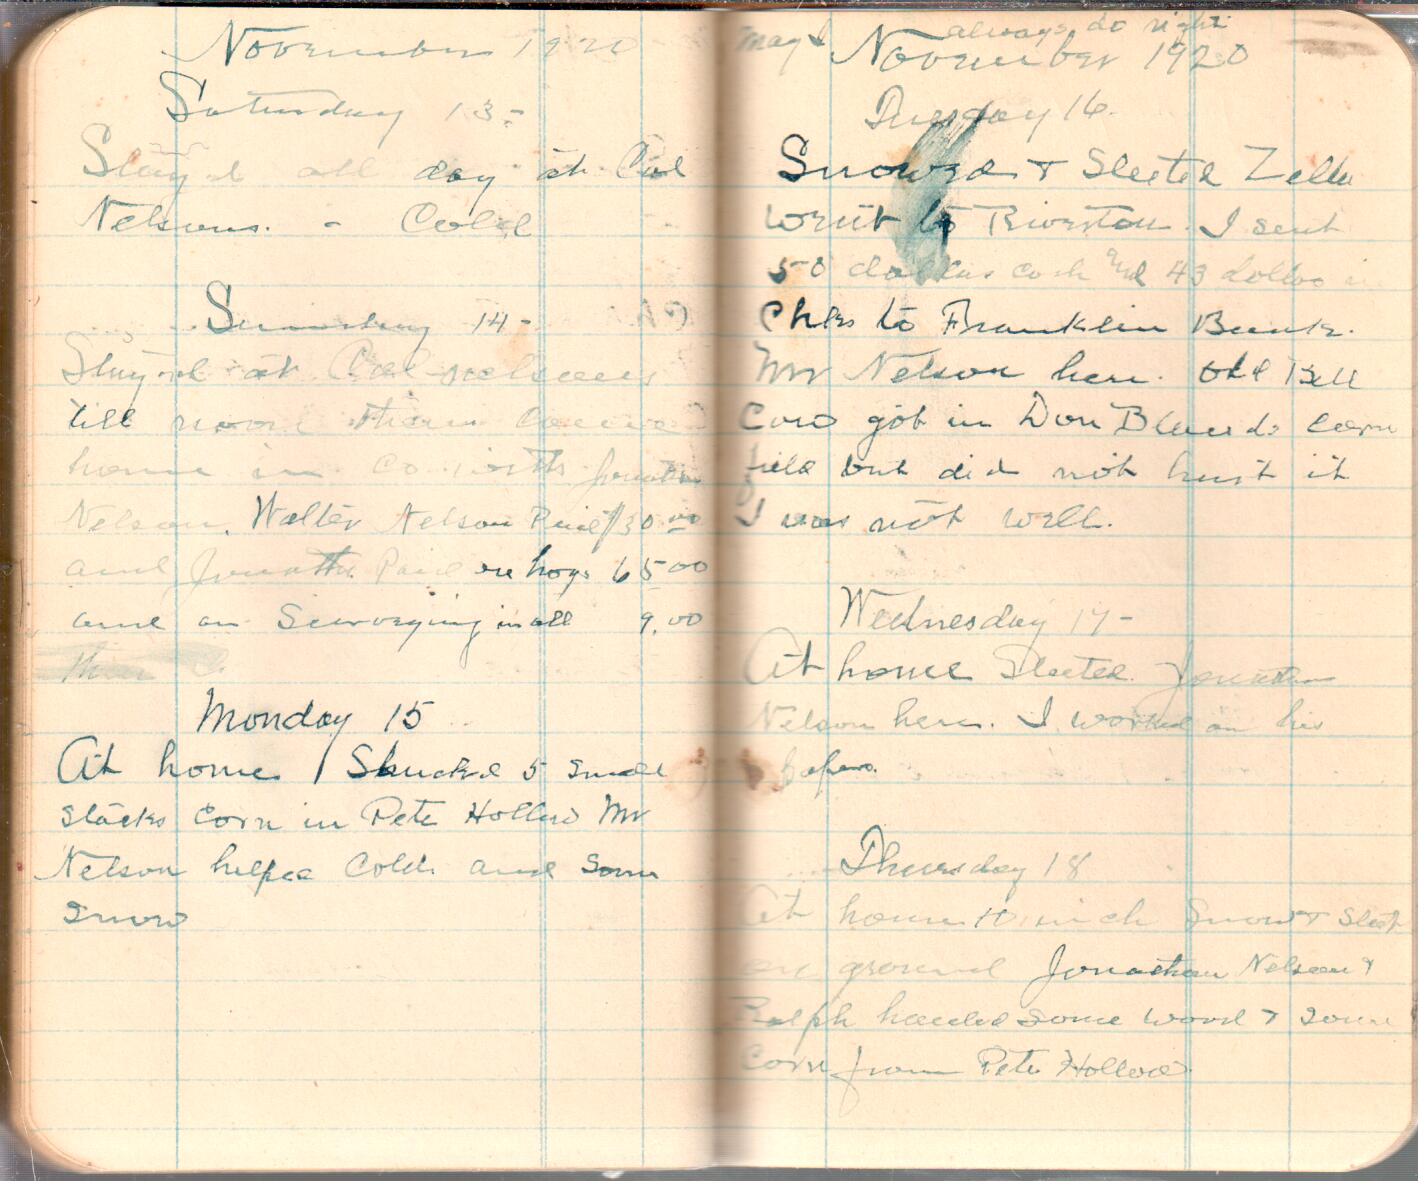 November 1920
Saturday 13-
Stayed all day at Cal
Nelsons. - Cold
Sunday 14-
Stayed at Cal Nelsons
till noon then
home in Co with Jonathan
Nelson. Walter Nelson Paid $30.00
and Jonathan Paid on hogs 65 00
and on Surveying in all 9.00
Monday 15
At home Shucked 5 small
stacks corn in Pete Hollow Mr
Nelson helped Cold and some
snow
May I always do right
November 1920
Tuesday 16.
Snowed & Sleeted Zella
went to Riverton. I sent
50 dollars cash and 43 dollars in
Chks to Franklin Bank.
Mr Nelson here. Old Bell
Cow got in Don Blands corn
field but did not hurt it
I was not well.
Wednesday 17-
At home Sleeted. Jonathan
Nelson here. I worked on his
papers.
Thursday 18
At home 10 inch Snow & Sleet
on ground Jonathan Nelson &
Ralph hauled some wood & some
corn from Pete Hollow